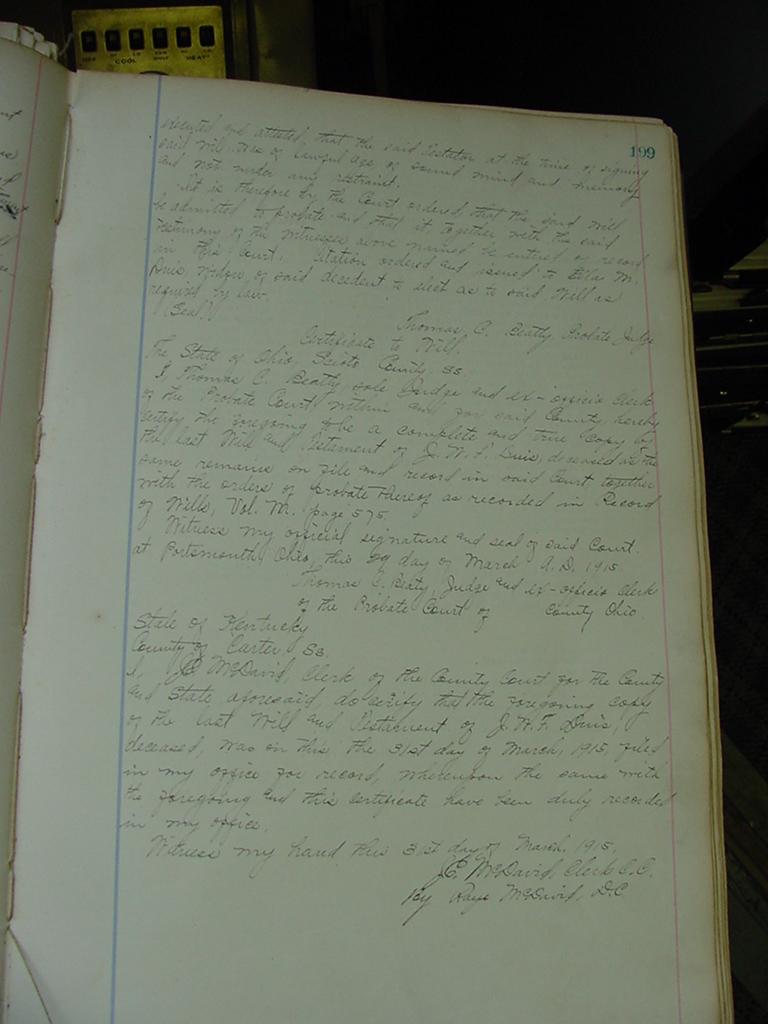 COOL
HEAT
199
executed and attested, that the said Testator at the time of signing
said will was of lawful age of sound mind and memory
and not under any restraint.
It is therefore by the Court ordered that the said will
be admitted to probate and that it together with the said
testimony of the witnesses above named be entered of record
in this Court. Citation ordered and issued to M.
Duis, Widow of said decedent to elect as to said Will as
required by law.
(Seal) Thomas C. Beatty, Probate Judge
Certificate to Will.
The State of Ohio, Scioto County, ss.
I, Thomas C. Beatty sole Judge and ex-officio Clerk
of the Probate Court within and for said County, hereby
certify the foregoing to be a complete and true copy of
the last Will and Testament of J. W. F. Duis, deceased as the
same remains on file and record in said Court together
with the orders of probate thereof as recorded in Record
of Wills, Vol. M. page 575.
Witness my official signature and seal of said Court.
at Portsmouth, Ohio, this day of March A.D. 1915
Thomas C. Beaty, Judge and ex-officio Clerk
of the Probate Court of County Ohio
State of Kentucky
County of Carter, Ss.
I, JE McDavid, Clerk of the County Court for the County
and State aforesaid, do certify that the foregoing copy
of the last Will and Testament of J. W. F. Duis,
deceased, was on this the 31st day of March, 1915, filed
in my office for record, whereupon the same with
the foregoing and this certificate have been duly recorded
in my office.
Witness my hand this 31st day of March. 1915.
JE McDavid, Clerk C.C.
By Raye McDavid, D.C.